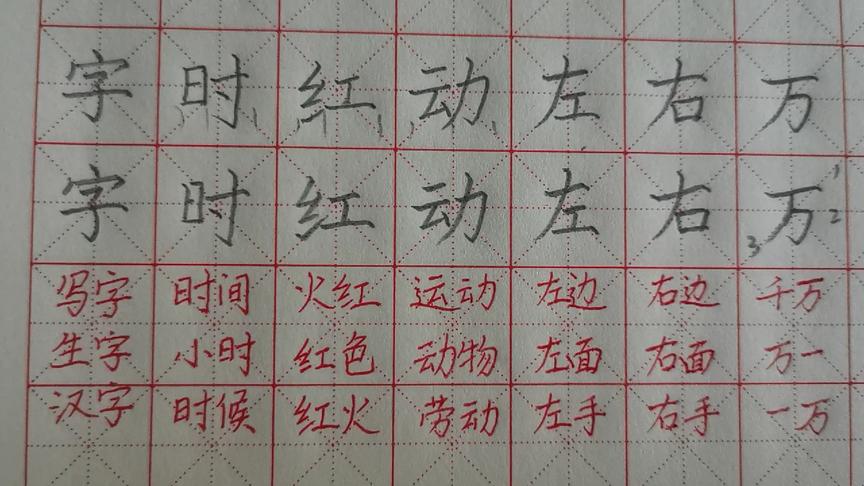 字 时 红 动 左 右 万
字 时 红 动 左 右 万 1 2 3
写字 时间 火红 运动 左边 右边 千万
生字 小时 红色 动物 左面 右面 万一
汉字 时候 红火 劳动 左手 右手 一万